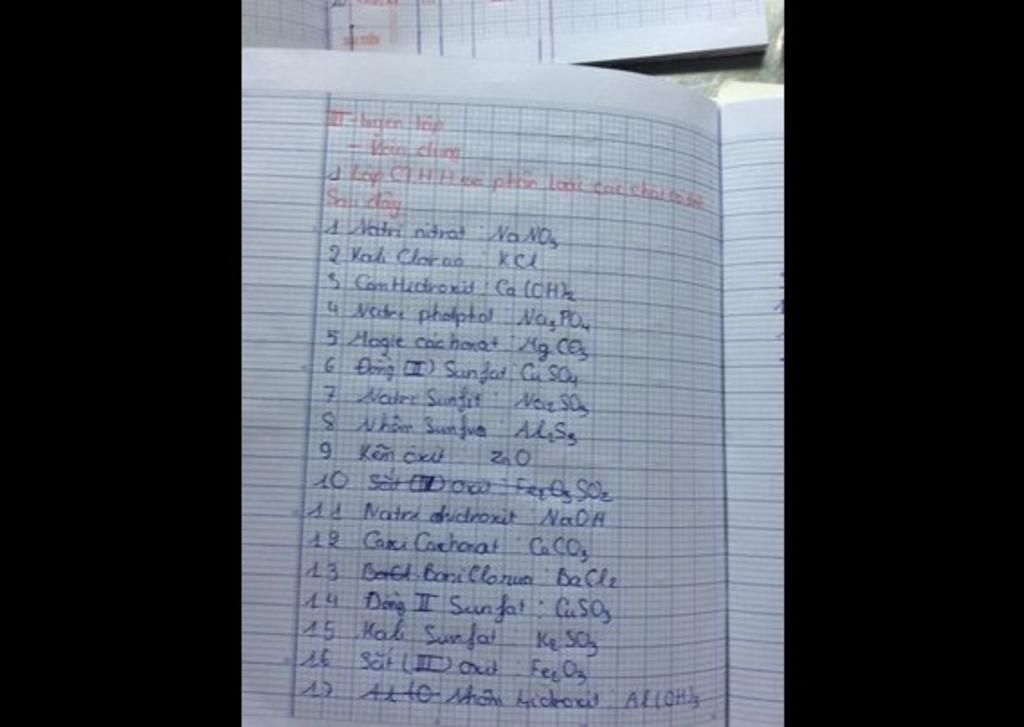 III - Luyện tập
- Vận dụng
1 Lập CTHH và phân loại các chất có tên
Sau đây
1 Natri nitrat : NaNO3
2 Kali Clorua : KCl
3 Canxi Hidroxit : Ca(OH)2
4 Natri photphat : Na3PO4
5 Magie cacbonat : MgCO3
6 Đồng (II) Sunfat : CuSO4
7 Natri Sunfit : Na2SO3
8 Nhôm Sunfua : Al2S3
9 Kẽm oxit : ZnO
10 Sắt (III) oxit : Fe2O3 SO2
11 Natri hidroxit : NaOH
12 Canxi Cacbonat : CaCO3
13 BaCl Bari Clorua : BaCl2
14 Đồng II Sunfat : CuSO3
15 Kali Sunfat : K2SO3
16 Sắt (III) oxit : Fe2O3
17 Nhôm hidroxit : Al(OH)3